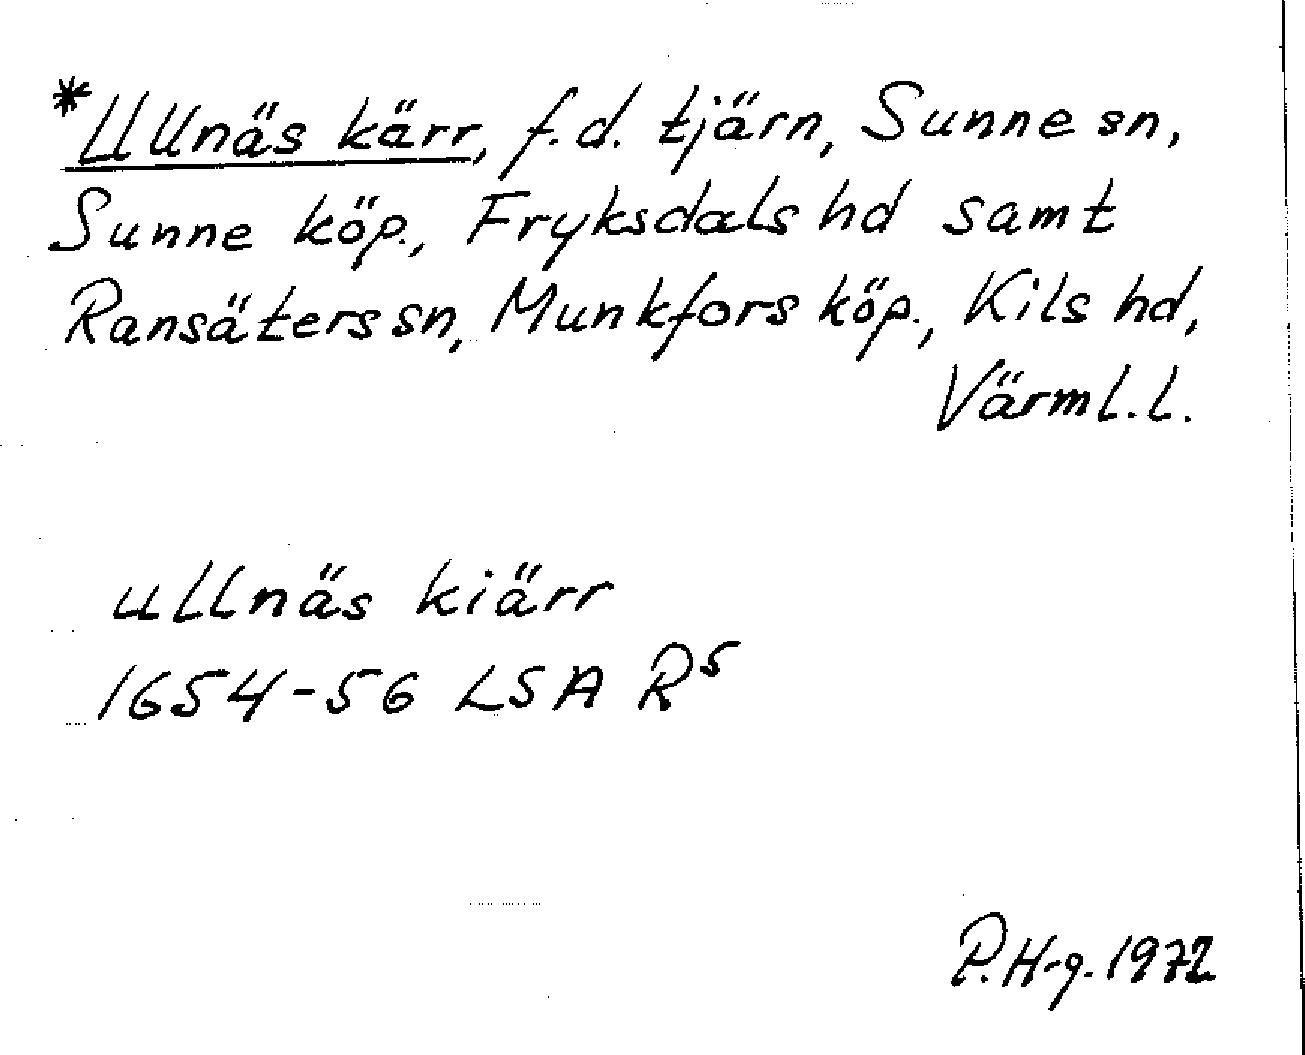 *Ullnäs kärr, f.d. tjärn, Sunne sn,
Sunne köp., Fryksdals hd samt
Ransäters sn, Munkfors köp., Kils hd,
Värml. l.
ullnäs kiärr
1654-56 LSA R⁵
P.H-g. 1972